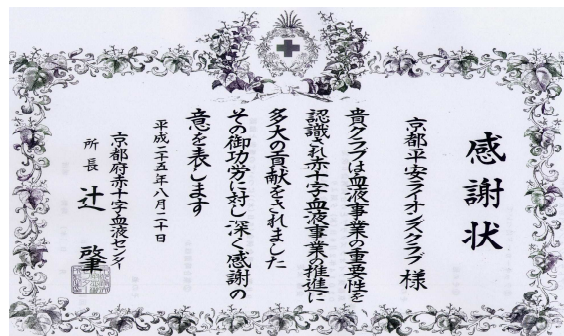 感謝状
京都平安ライオンズクラブ 様
貴クラブは血液事業の重要性を
認識され赤十字血液事業の推進に
多大の貢献をされました
その御功労に対し深く感謝の
意を表します
平成二十五年八月二十日
京都府赤十字血液センター
所長 辻 肇